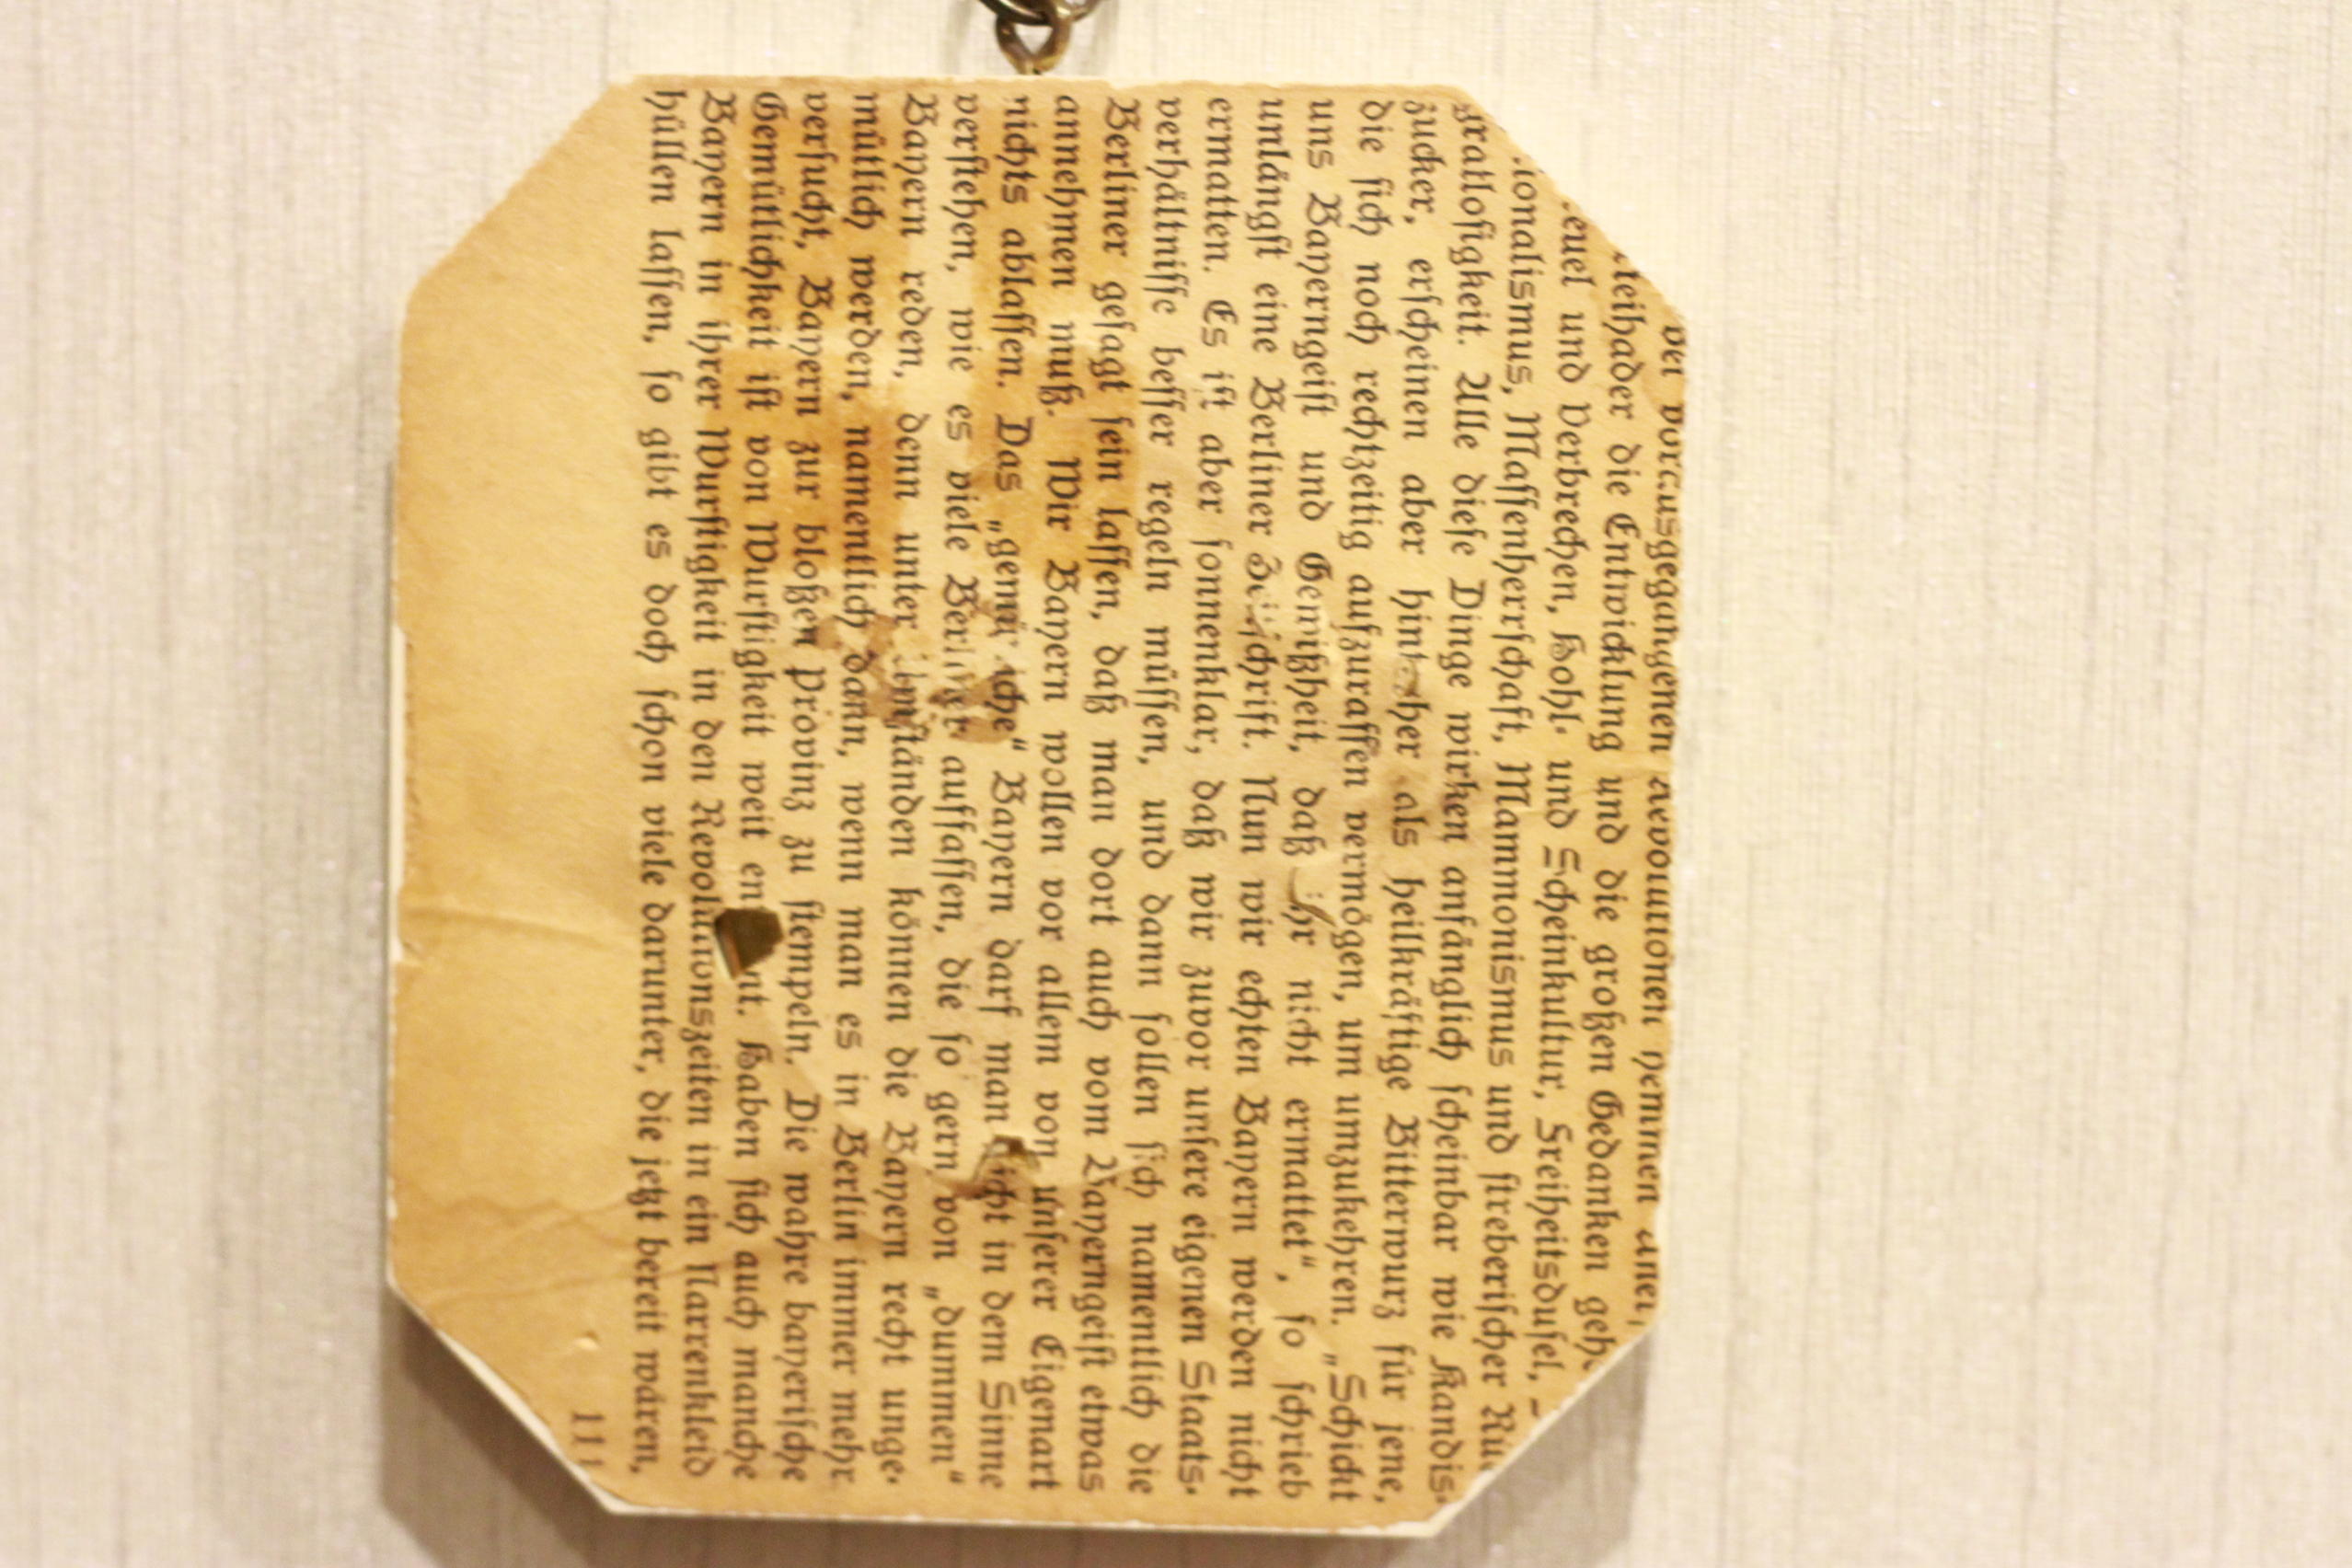 der vorausgegangenen Revolutionen hemmen
teihader die Entwicklung und die großen Gedanken geh
euel und Verbrechen, Hohl- und Scheinkultur, Freiheitsdusel,
ionalismus, Massenherrschaft, Mammonismus und streberischer
gratlosigkeit. Alle diese Dinge wirken anfänglich scheinbar wie Kandis-
zucker, erscheinen aber hinterher als heilkräftige Bitterwurz für jene,
die sich noch rechtzeitig aufzuraffen vermögen, um umzukehren. „Schickt
uns Bayerngeist und Gewißheit, daß ihr nicht ermattet“, so schrieb
unlängst eine Berliner Zeitschrift. Nun wir echten Bayern werden nicht
ermatten. Es ist aber sonnenklar, daß wir zuvor unsere eigenen Staats-
verhältnisse besser regeln müssen, und dann sollen sich namentlich die
Berliner gesagt sein lassen, daß man dort auch vom Bayerngeist etwas
annehmen muß. Wir Bayern wollen vor allem von unserer Eigenart
nichts ablassen. Das „gemütliche“ Bayern darf man nicht in dem Sinne
verstehen, wie es viele Berliner auffassen, die so gern von „dummen“
Bayern reden, denn unter Umständen können die Bayern recht unge-
mütlich werden, namentlich dann, wenn man es in Berlin immer mehr
versucht, Bayern zur bloßen Provinz zu stempeln. Die wahre bayerische
Gemütlichkeit ist von Wurstigkeit weit entfernt. Haben sich auch manche
Bayern in ihrer Wurstigkeit in den Revolutionszeiten in ein Narrenkleid
hüllen lassen, so gibt es doch schon viele darunter, die jetzt bereit wären,
111